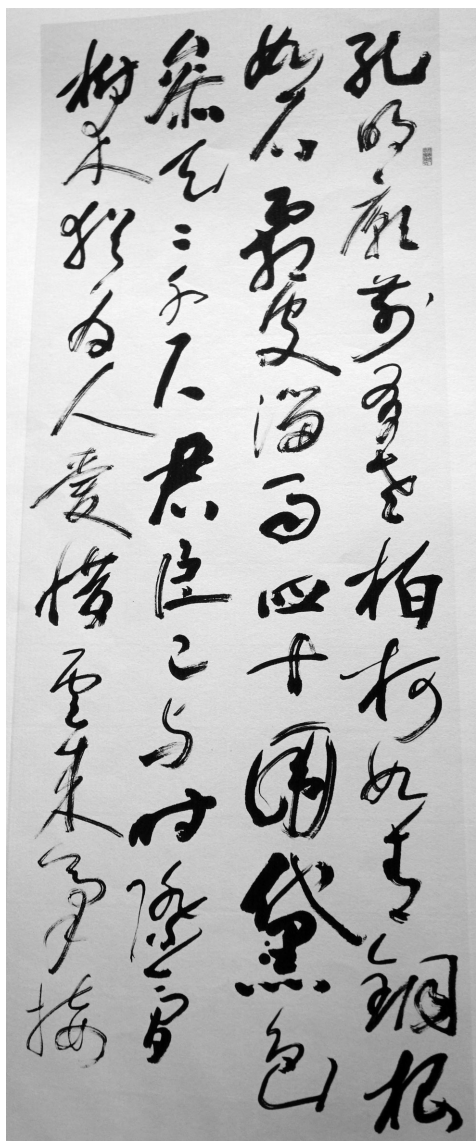 孔明廟前有老柏柯如青銅根
如石霜皮溜雨四十圍黛色
參天二千尺君臣已與時際會
樹木猶為人愛惜雲來氣接